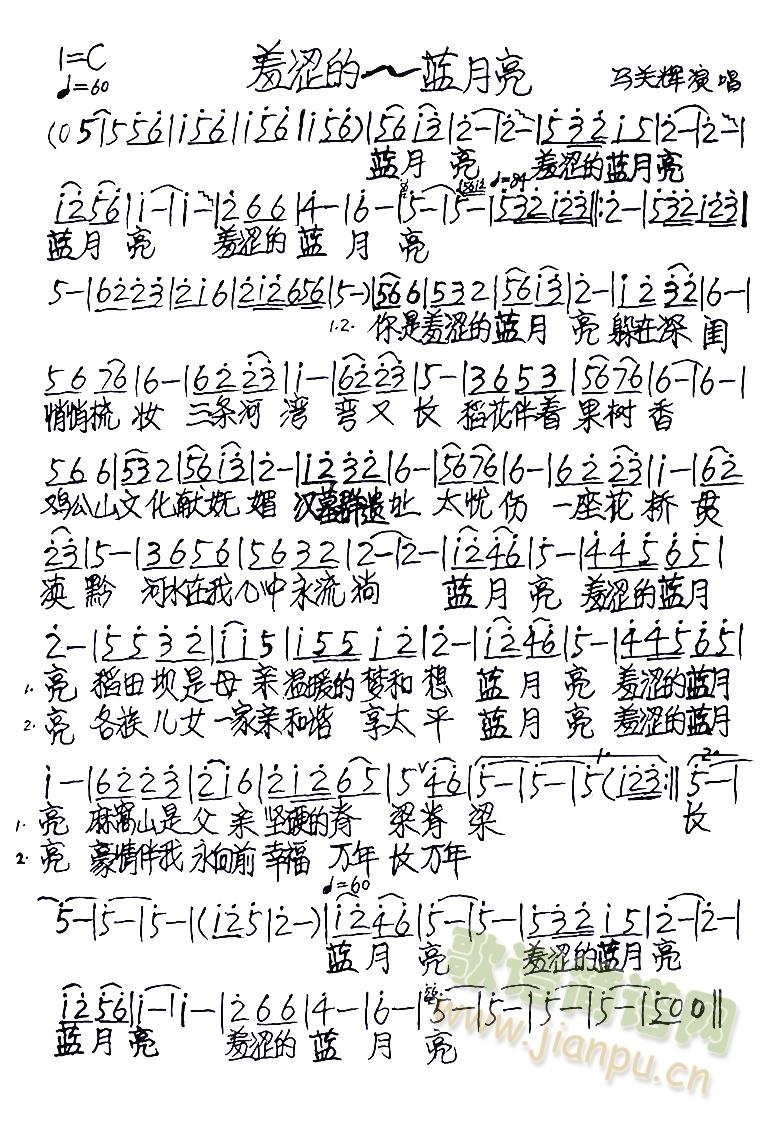 1=C
♩=60
羞涩的～蓝月亮
马关辉演唱
(0 5|5 5 6|i 5 6|i 5 6|i 5 6)|5 6 i 3|2 -|2 -|5 3 2 i 5|2 -|2 -|
蓝月 亮 羞涩的蓝月亮
♩=84
i 2 5 6|i -|i -|2 6 6|4 -|6 -|5 -|5 -|5 3 2 i 2 3||:2 -|5 3 2 i 2 3|
蓝月 亮 羞涩的 蓝 月 亮
5 -|6 2 2 3|2 i 6|2 i 2 6 5 6|5 -)|5 6 6|5 3 2|5 6 i 3|2 -|i 2 3 2|6 -|
1.2. 你是羞涩的蓝月 亮 躲在深 闺
5 6 7 6|6 -|6 2 2 3|i -|6 2 2 3|5 -|3 6 5 3|5 6 7 6|6 -|6 -|
悄悄梳 妆 三条河 湾 弯又 长 稻花伴着 果树 香
5 6 6|5 3 2|5 6 i 3|2 -|i 2 3 2|6 -|5 6 7 6|6 -|6 2 2 3|i -|6 2
鸡公山文化献妩 媚 汉墓群遗址 太忧 伤 一座花 桥 贯
2 3|5 -|3 6 5 6|5 6 3 2|2 -|2 -|i 2 4 6|5 -|4 4 5 6 5|
滇 黔 河水在我心中永流淌 蓝 月 亮 羞涩的蓝月
2 -|5 5 3 2|i i 5|i 5 5 i 2|2 -|i 2 4 6|5 -|4 4 5 6 5|
1. 亮 稻田坝是母 亲温暖的 梦和 想 蓝 月 亮 羞涩的蓝月
2. 亮 各族儿女一家亲和谐 享太 平 蓝 月 亮 羞涩的蓝月
i -|6 2 2 3|2 i 6|2 i 2 6 5|5 ∨ 4 6|5 -|5 -|5 (i 2 3:||5 -|
1. 亮 麻窝山是父 亲坚硬的脊 梁脊 梁 长
2. 亮 豪情伴我永向前幸福 万年 长万年
♩=60
5 -|5 -|5 -|(i 2 5|2 -)|i 2 4 6|5 -|5 -|5 3 2 i 5|2 -|2 -|
蓝 月 亮 羞涩的蓝月亮
i 2 5 6|i -|i -|2 6 6|4 -|6 -|5 -|5 -|5 -|5 -|5 0 0||
蓝月 亮 羞涩的 蓝 月 亮
歌谱简谱网
www.jianpu.cn